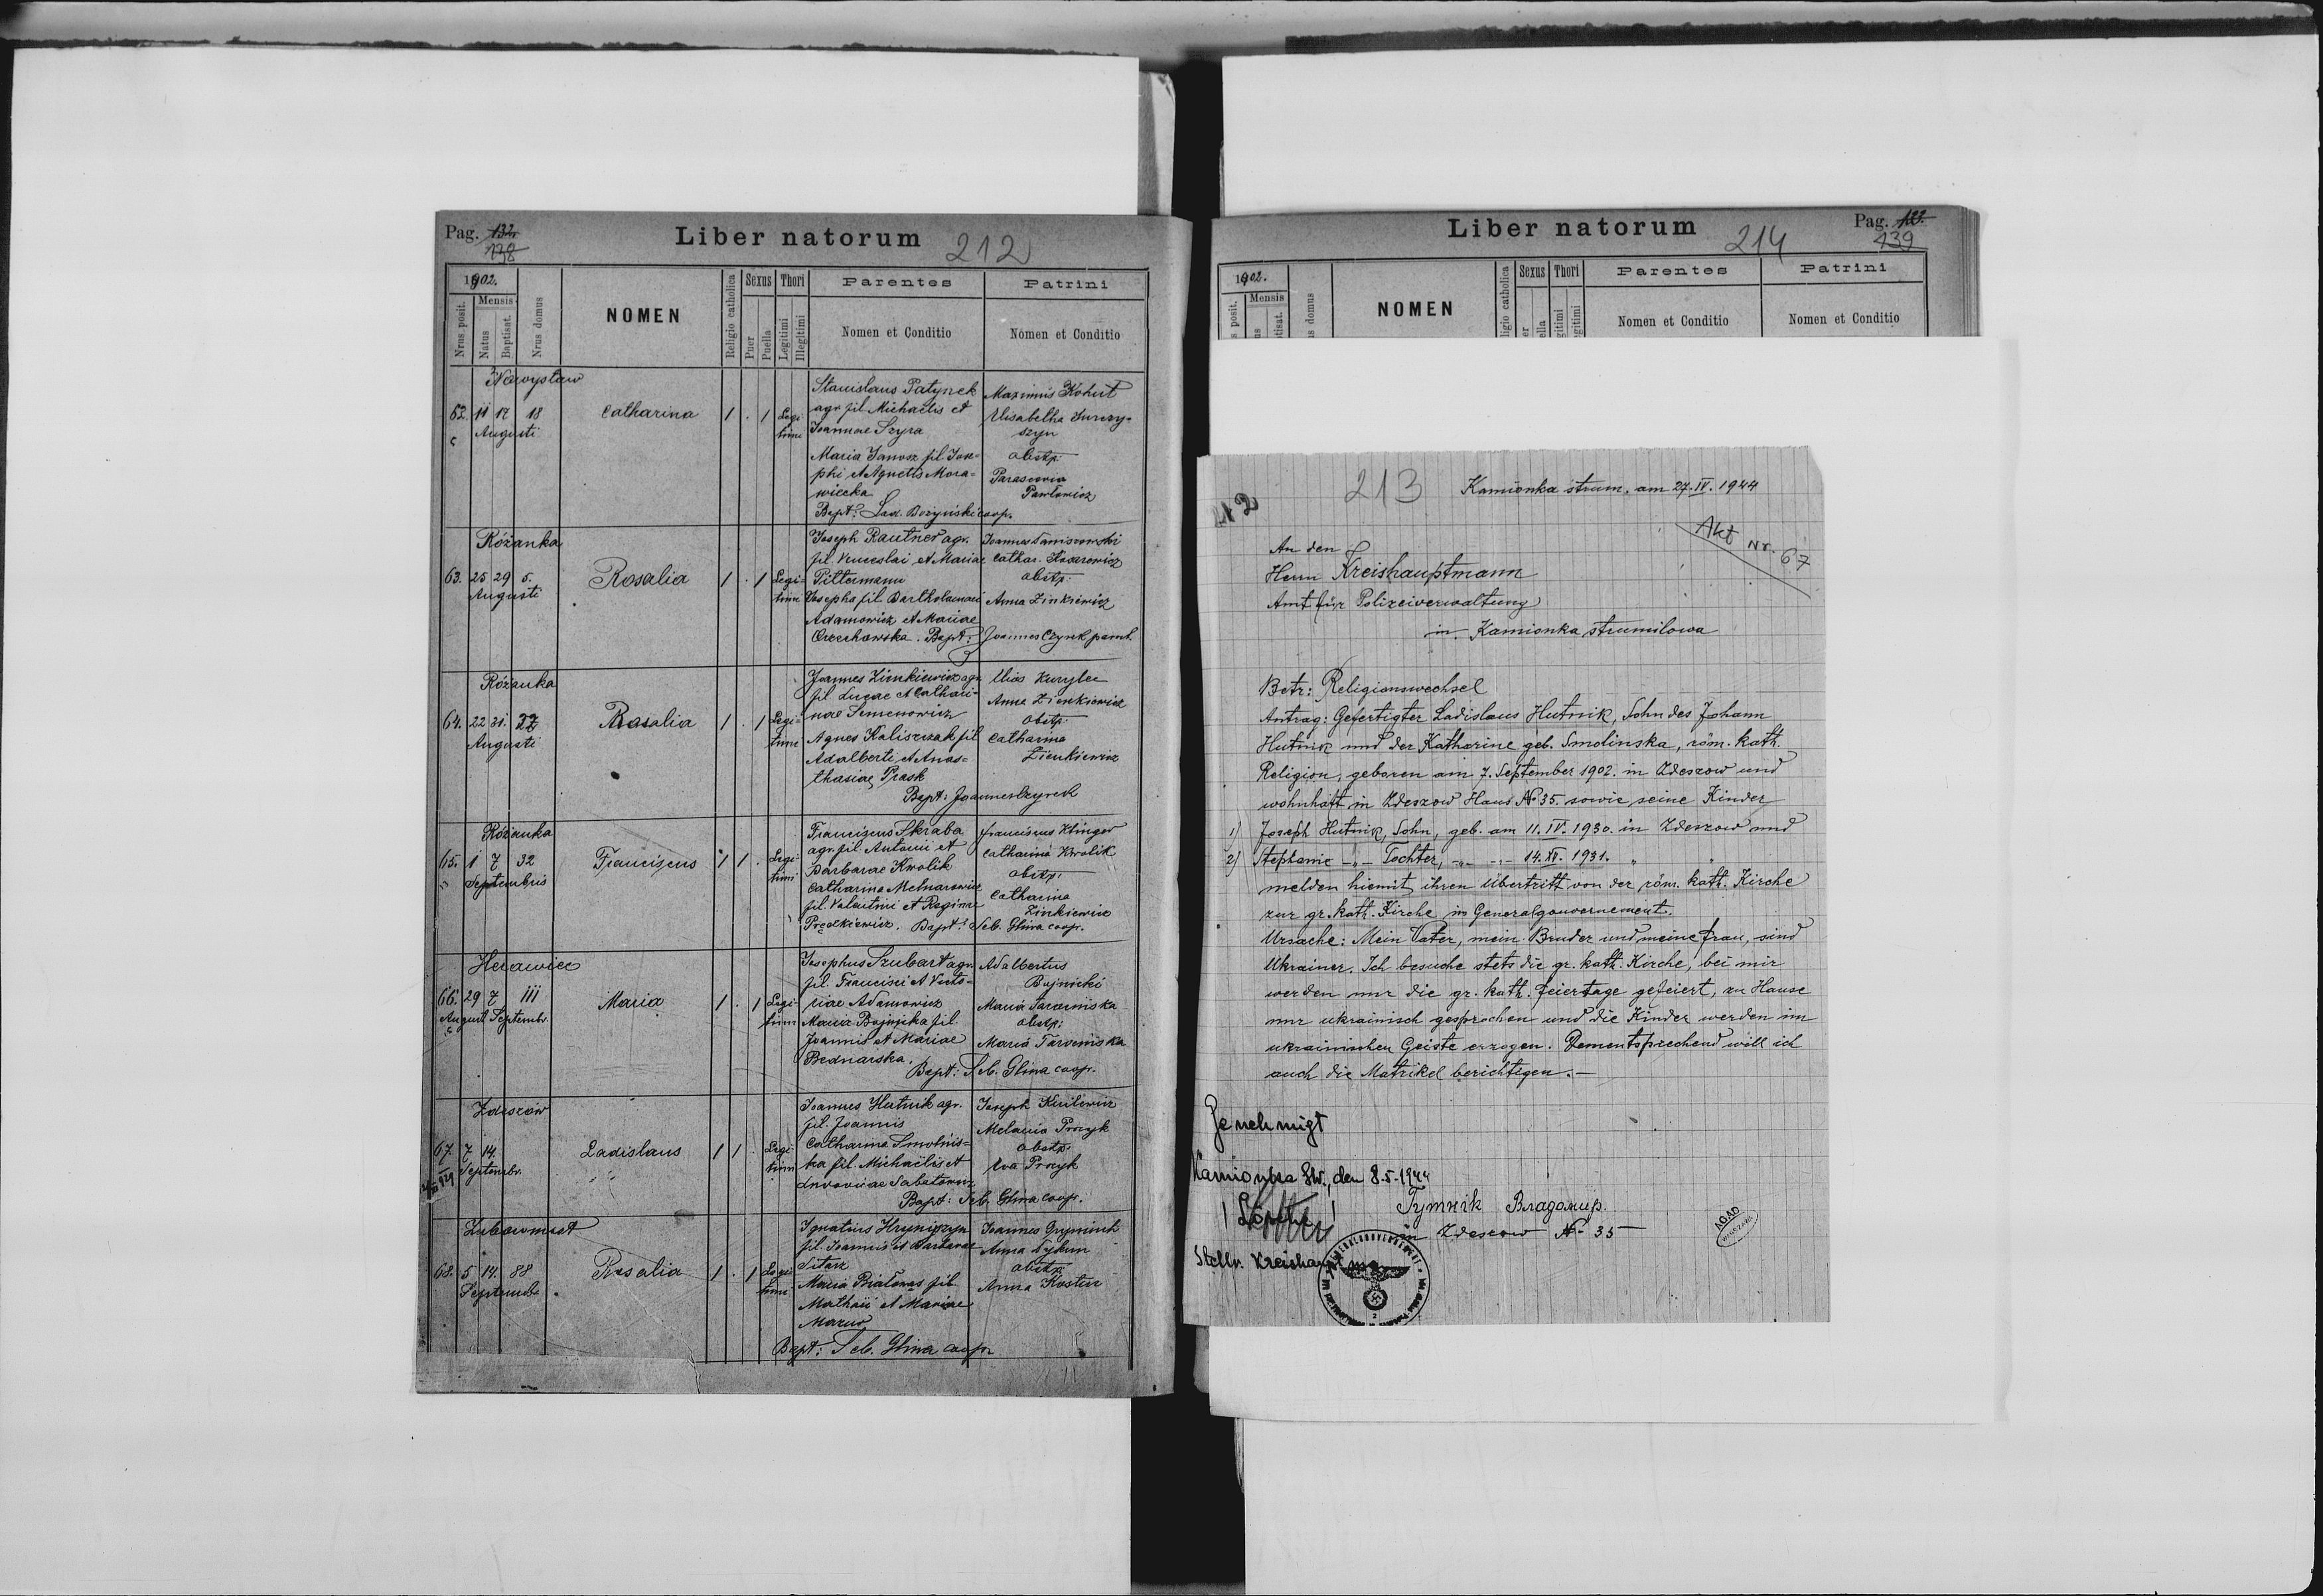 Pag. 132.
138
Liber natorum
212
1902.
Nrus posit.
Mensis
Natus
Baptisat.
Nrus domus
NOMEN
Religio catholica
Sexus
Puer
Puella
Thori
Legitimi
Illegitimi
Parentes
Nomen et Conditio
Patrini
Nomen et Conditio
62. 11 17 18
Augusti
Catharina 1 . 1 Legi-
timi
Stanislaus Patynek
agr. fil. Michaelis et
Joannae Szyra
Maria Janosz fil. Jose-
phi et Agnetis Mora-
wiecka
Maximus Kohut
Elisabetha Jurczy-
szyn
obstp:
Parascevia
Pawłowicz
Bapt: Lad. Bożyński coop.
Różanka
63. 25 29 5.
Augusti
Rosalia 1 . 1 Legi-
timi
Joseph Rautner agr.
fil. Venceslai et Mariae
Pittermann
Josepha fil. Bartholomaei
Adamowicz et Mariae
Orzechowska. Bapt: Joannes Czyrek paroch.
Cathar.
obstp:
Anna Zinkiewicz
Różanka
64. 22 31. 37
Augusti
Rosalia 1 . 1 Legi-
timi
Joannes Zienkiewicz agr.
fil. Lucae et Cathari-
nae Semenowicz
Agnes Kaliszczak fil
Adalberti et Anas-
thasiae Prask
Elias Kuryłec
Anna Zienkiewicz
obstp:
Catharina
Zienkiewicz
Bapt: Joannes Czyrek
Różanka
65. 1 7 32
Septembris
Franciscus 1 1 . Legi-
timi
Franciscus Skraba
agr. fil. Antonii et
Barbarae Kwolik
Catharina Melnarowicz
fil. Valentini et Reginae
Prędkiewicz. Bapt: Seb. Glina coop.
Franciscus Klinger
Catharina Kwolik
obstp:
Catharina
Zinkiewicz
66. 29 7 111
August Septembr.
Maria 1 . 1 Legi-
timi
Josephus Szubart agr.
fil. Francisci et Victo-
riae Adamowicz
Maria Bojnicka fil.
Joannis et Mariae
Bednarska.
Adalbertus
Bojnicki
Maria
obstp:
Maria
Bapt: Seb. Glina coop.
Zdeszów
67. 7 14.
Septembr.
Ladislaus 1 1 . Legi-
timi
Joannes Hutnik agr.
fil. Joannis
Catharina Smolińs-
ka fil. Michaëlis et
Ludovicae Sabatowicz
Joseph Kurilewicz
Melania Procyk
obstp.
Eva Procyk
Bapt: Seb. Glina coop.
68. 5 14. 88
Septemb.
Rosalia 1 . 1 Legi-
timi
Ignatius Hryniszyn
fil. Joannis et Barbarae
Sitarz
Maria Białowąs fil.
Mathaii et Mariae
Mazur
Joannes
Anna
obstp.
Anna Kostur
Bapt: Seb. Glina coop.
Liber natorum
214
Pag. 133.
139
1902.
Mensis
NOMEN
Sexus
Thori
Parentes
Nomen et Conditio
Patrini
Nomen et Conditio
212
213
Kamionka strum. am 27.IV.1944
Akt Nr. 67
An den
Herrn Kreishauptmann
Amt für Polizeiverwaltung
in Kamionka strumilowa
Betr: Religionswechsel
Antrag: Gefertigter Ladislaus Hutnik, Sohn des Johann
Hutnik und der Katharine geb. Smolinska, röm. kath.
Religion, geboren am 7. September 1902. in Zdeszow und
wohnhaft in Zdeszow Haus No 35. sowie seine Kinder
1) Joseph Hutnik, Sohn, geb. am 11.IV.1930. in Zdeszow und
2) Stephanie -„- Tochter, -„- -„- 14.XI.1931. „ „
melden hiemit ihren Übertritt von der röm. kath. Kirche
zur gr. kath. Kirche im Generalgouvernement.
Ursache: Mein Vater, mein Bruder und meine Frau, sind
Ukrainer. Ich besuche stets die gr. kath. Kirche, bei mir
werden nur die gr. kath. Feiertage gefeiert, zu Hause
nur ukrainisch gesprochen und die Kinder werden im
ukrainischen Geiste erzogen. Dementsprechend will ich
auch die Matrikel berichtigen.-
Genehmigt
Kamionka Str., den 8.5.1944
Гутнік Владомир.
in Zdeszow No 35
Stellv. Kreishauptmann
AGAD
WARSZAWA